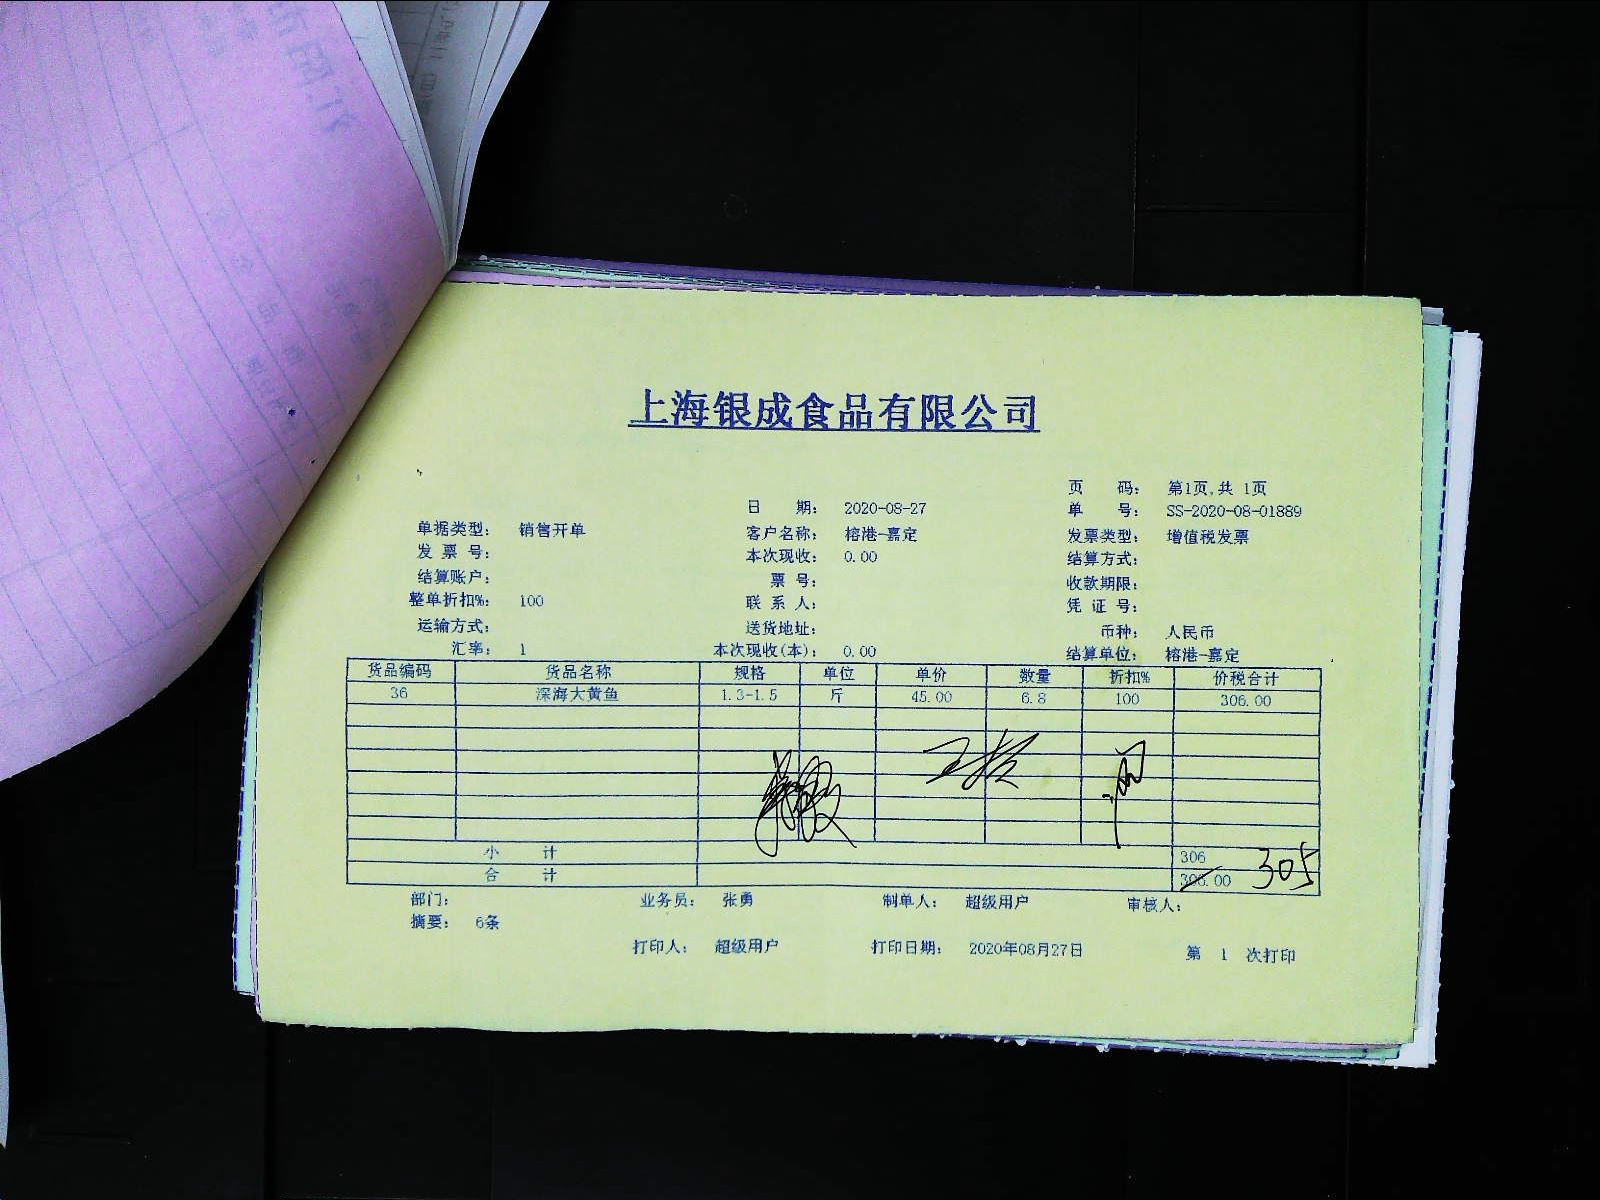 上海银成食品有限公司
页 码： 第1页,共 1页
日 期： 2020-08-27 单 号： SS-2020-08-01889
单据类型： 销售开单 客户名称： 榕港-嘉定 发票类型： 增值税发票
发 票 号： 本次现收： 0.00 结算方式：
结算账户： 票 号： 收款期限：
整单折扣%： 100 联 系 人： 凭 证 号：
运输方式： 送货地址： 币种： 人民币
汇率： 1 本次现收(本)： 0.00 结算单位： 榕港-嘉定
货品编码 货品名称 规格 单位 单价 数量 折扣% 价税合计
36 深海大黄鱼 1.3-1.5 斤 45.00 6.8 100 306.00
小 计 306
合 计 306.00 305
部门： 业务员： 张勇 制单人： 超级用户 审核人：
摘要： 6条
打印人： 超级用户 打印日期： 2020年08月27日 第 1 次打印